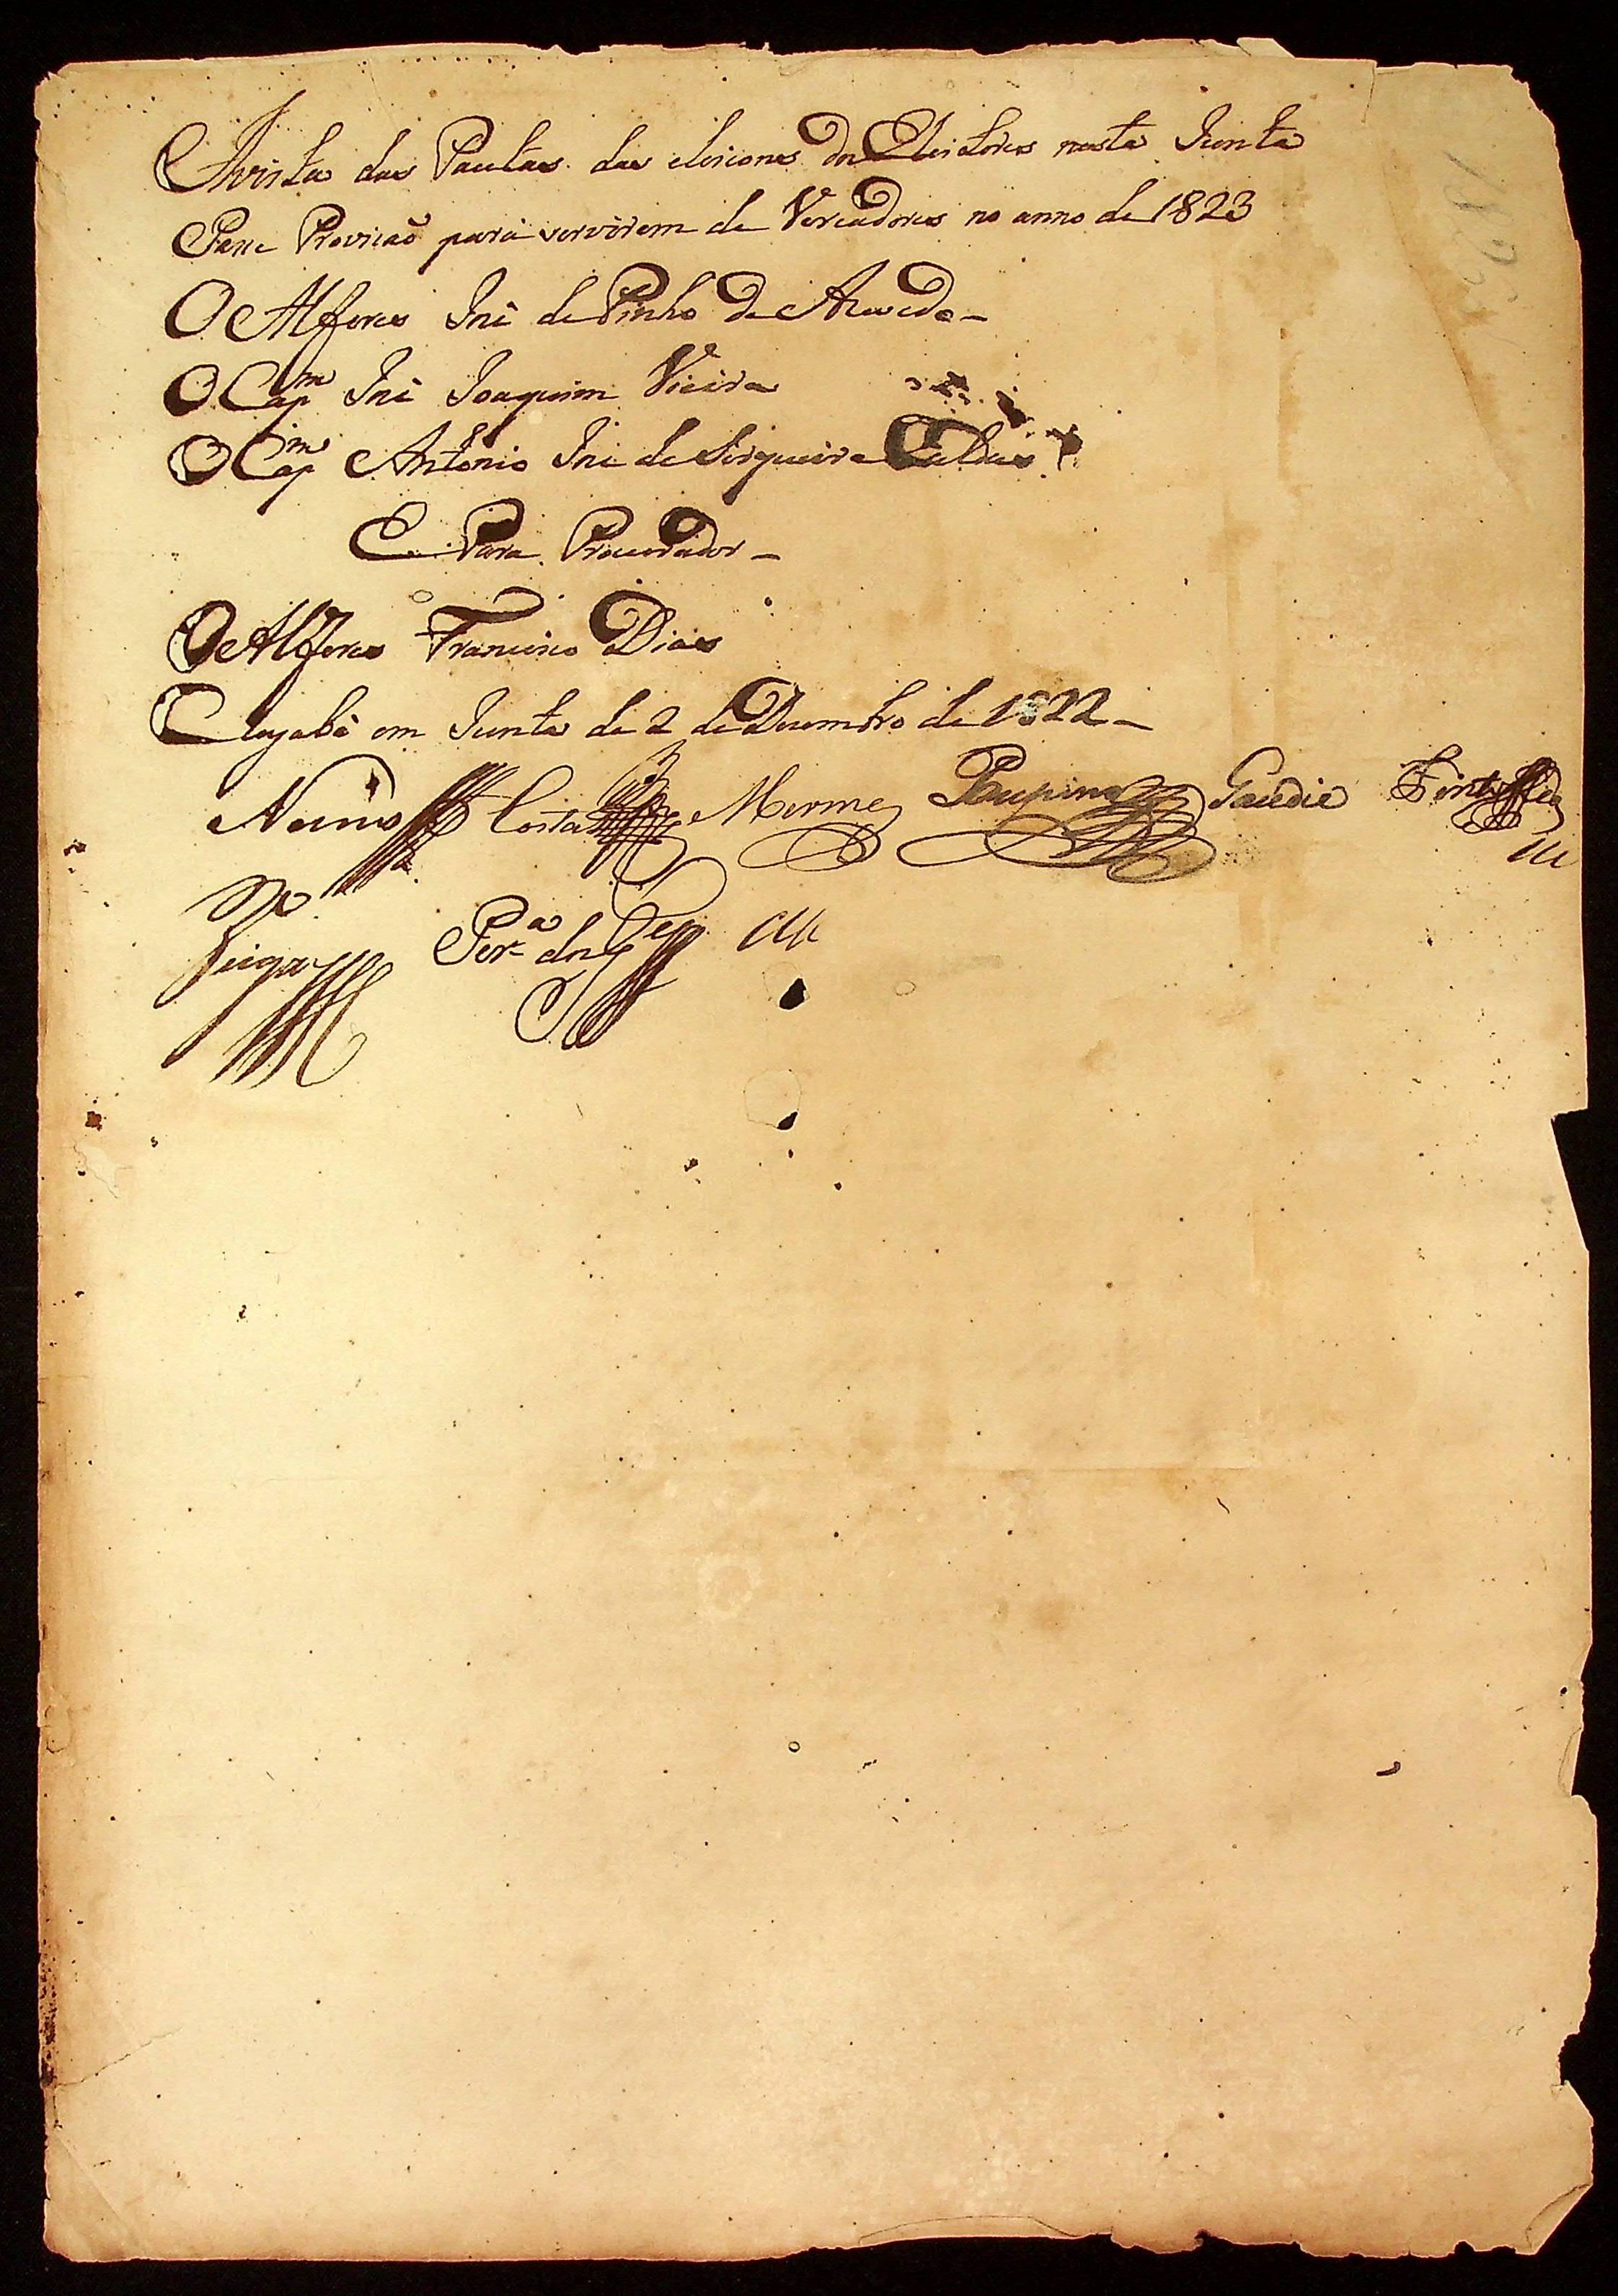 Avista das Pautas das eleicones dos Eleictores nesta Junta
Passe Provizaõ para servirem de Vereadores no anno de 1823
O Alferes José de Pinho de Azevedo _
O Cap.m José Joaquim Vieira
O Cap.m Antonio José de Sirqueira Caldas
E Para Procurador _
O Alferes Francisco Dias
Cuyabá em Junta de 2 de Dezembro de 1822 _
Neves Costa Moraes Poupino Gaudie
Veiga Per.a dos G.es